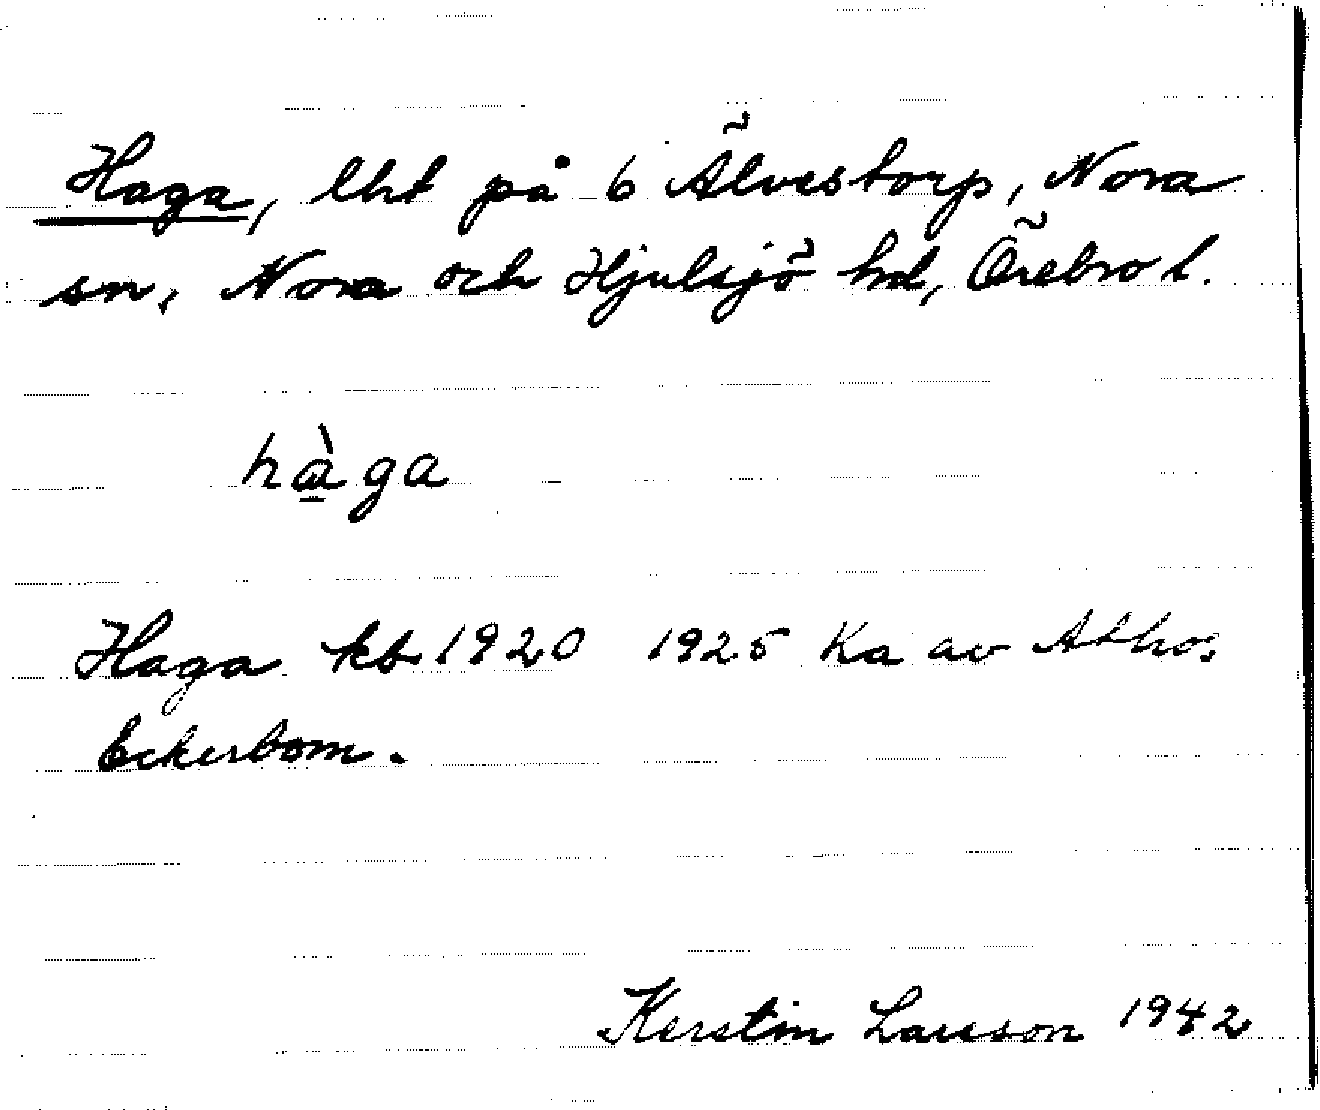 Haga, lht på 6 Älvestorp, Nora
sn, Nora och Hjulsjö hd, Örebro l.
hàga
Haga kb 1920 1925 Ka av Athos
Eckerbom.
Kerstin Larsson 1942